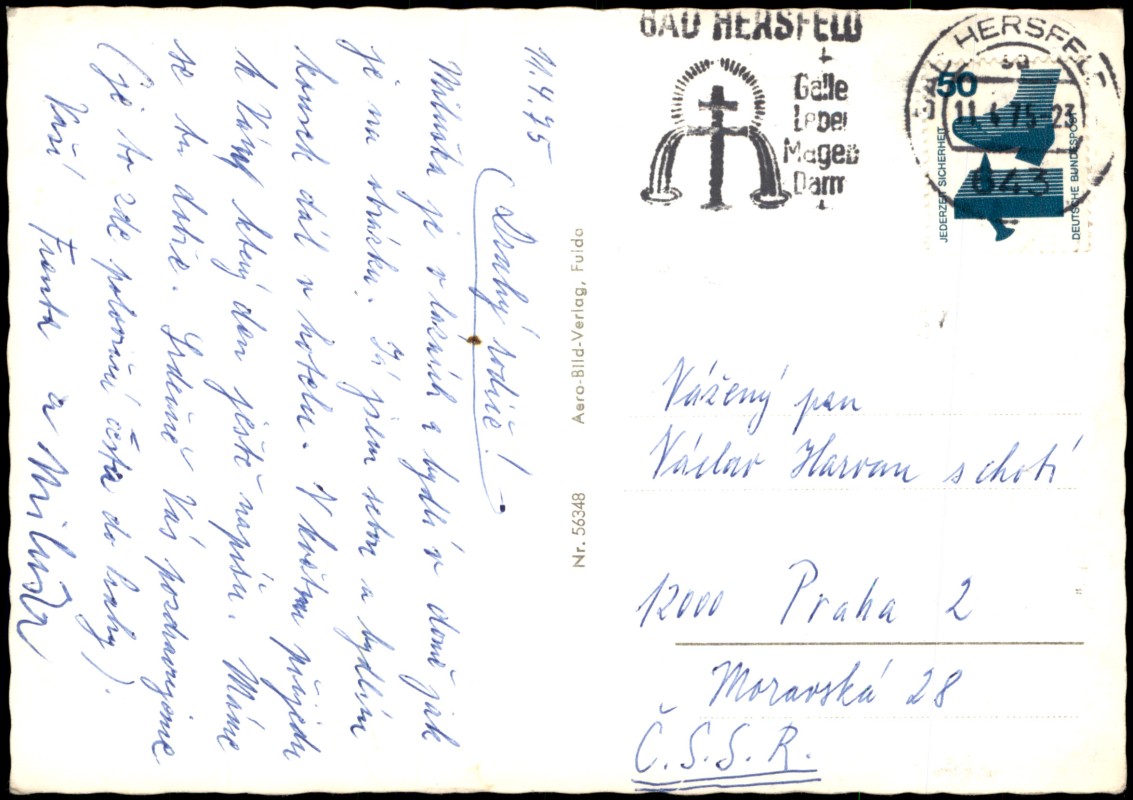 11.4.75
Drahý rodiče!
Miluška je v lázních a bydlí v domě jak
je na obrázku. Já jsem sebou a bydlím
kousek dál v hotelu. V květnu přijedu
k Vám který den ještě napíšu. Máme
se tu dobře. Srdečně Vás pozdravujeme
(je to zde poloviční cesta do Prahy).
Vaši Franta a Miluška
Aero-Bild-Verlag, Fulda
Nr. 56348
BAD HERSFELD
+
Galle
Leber
Magen
Darm
+
BAD HERSFELD
11.4.75-23
643
50
JEDERZEIT SICHERHEIT
DEUTSCHE BUNDESPOST
Vážený pan
Václav Harvan s chotí
12000 Praha 2
Moravská 28
Č.S.S.R.